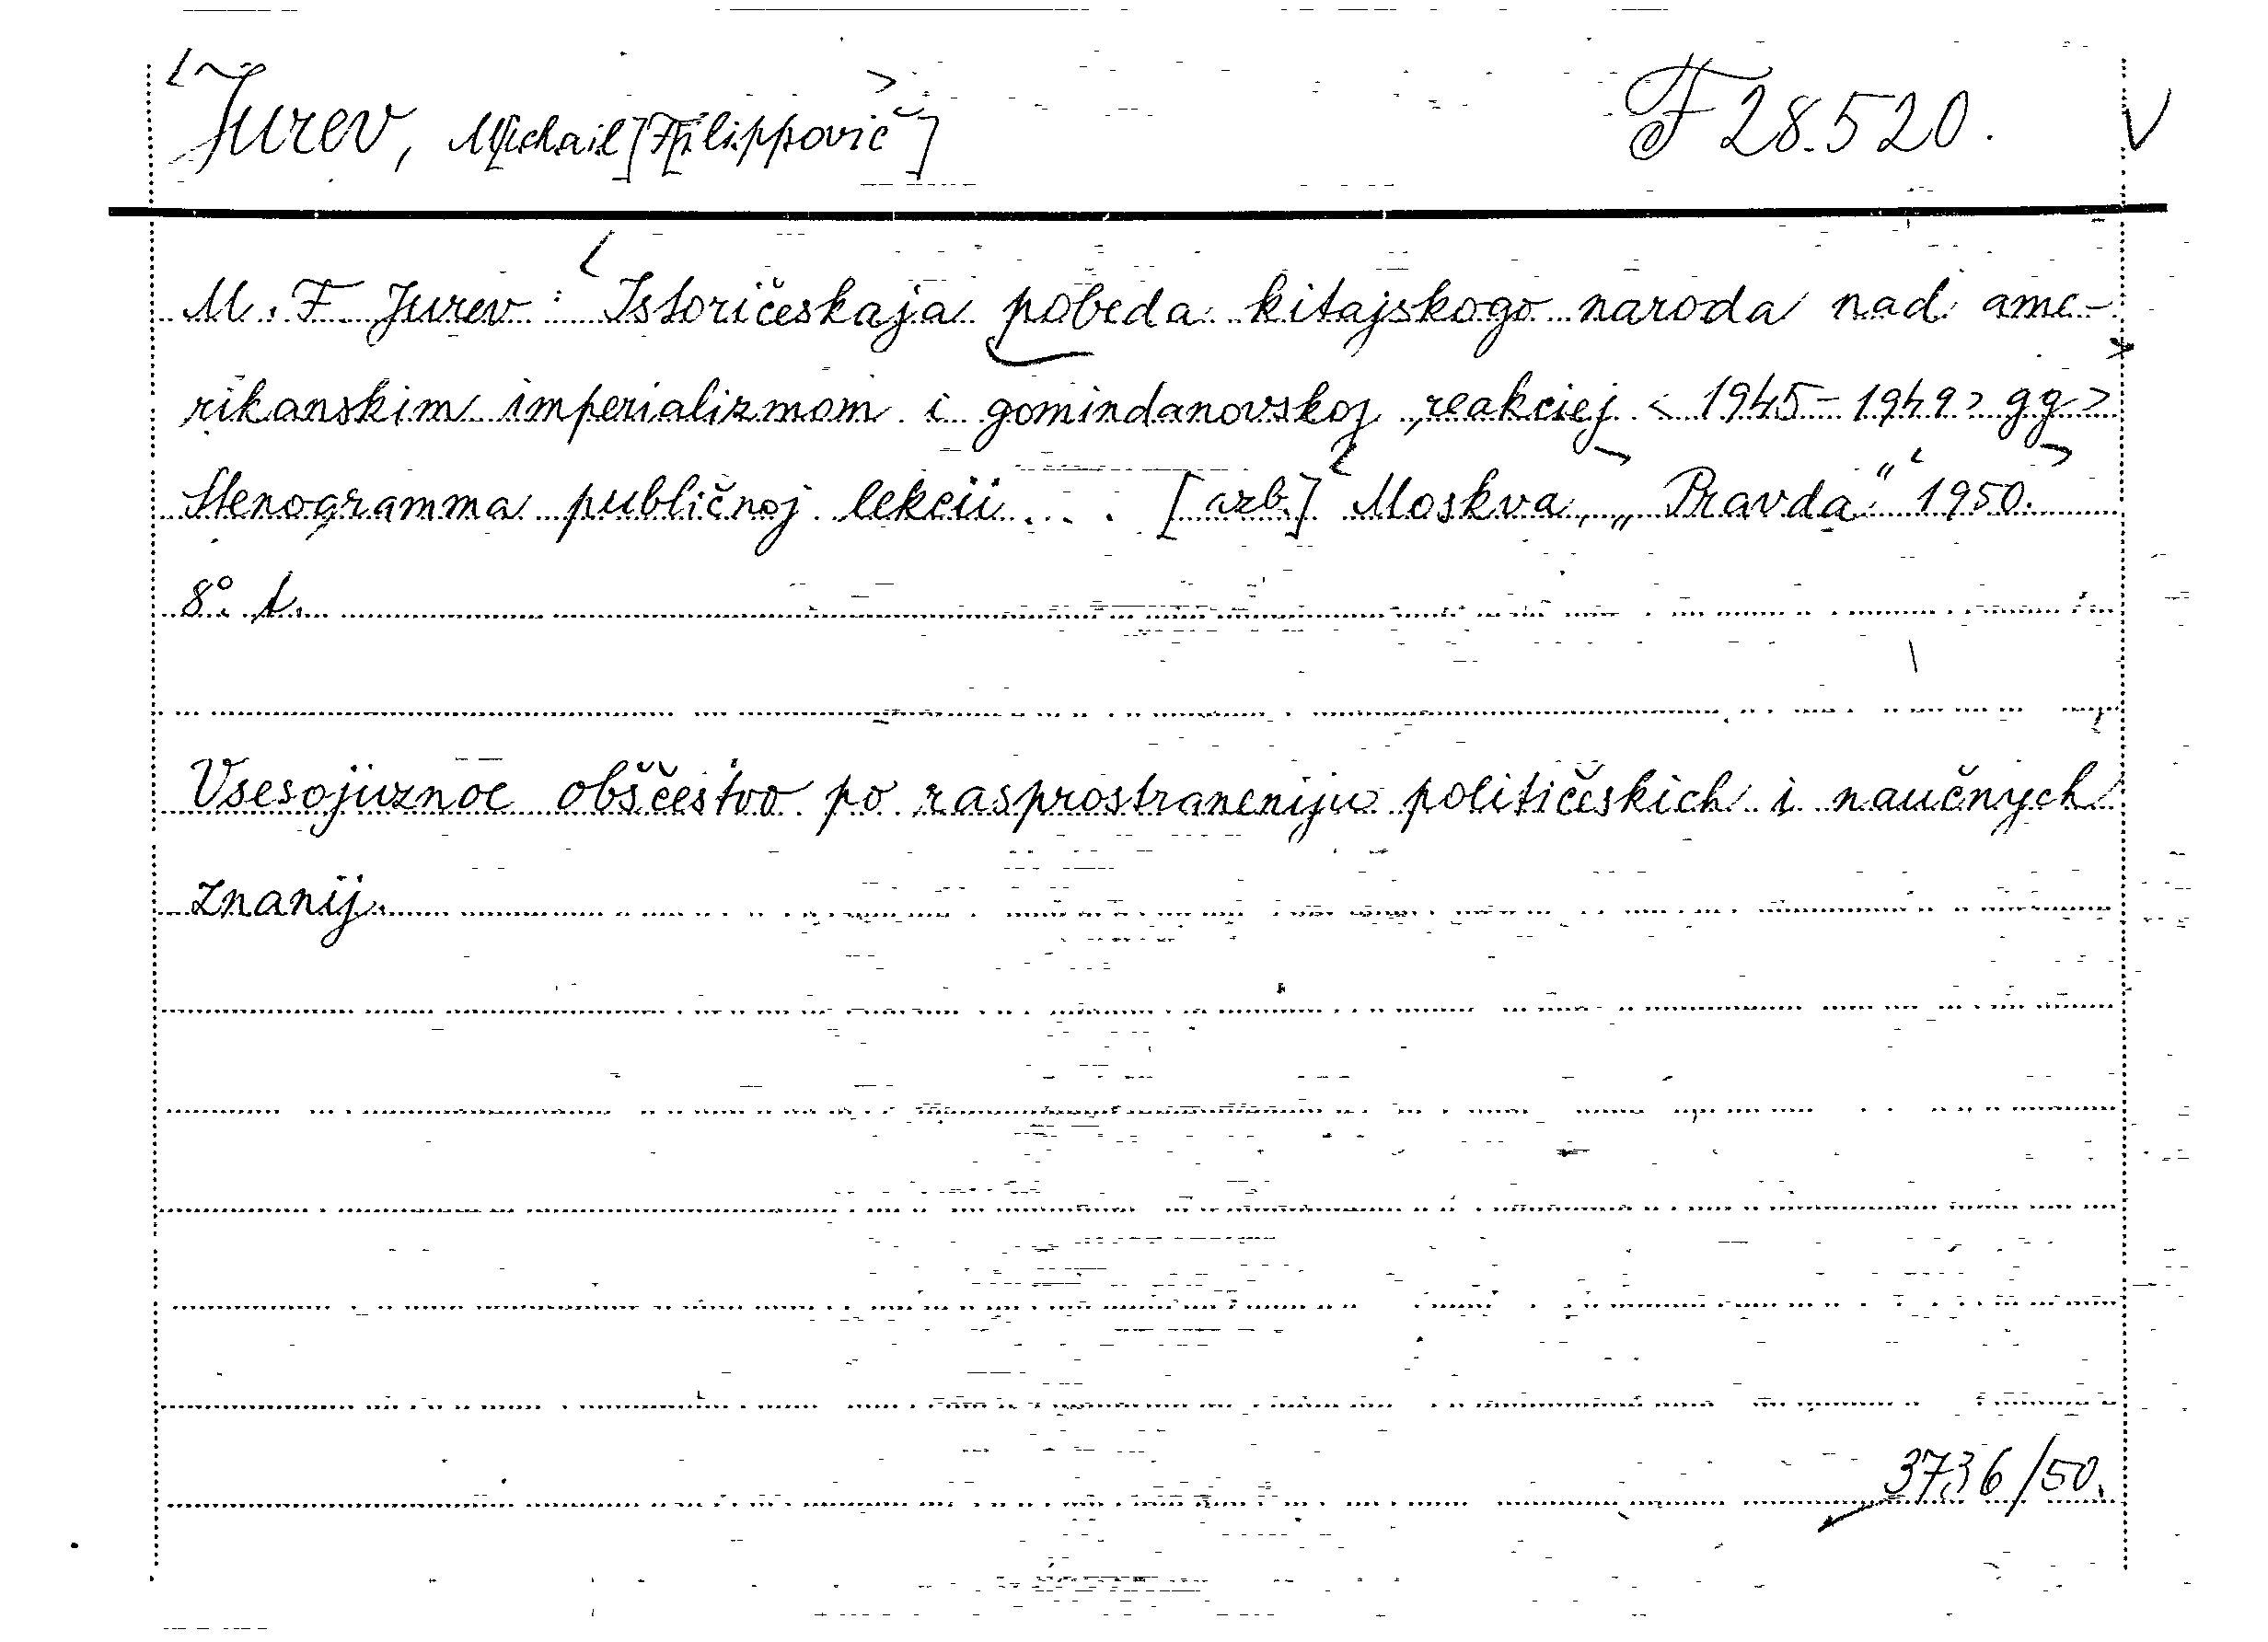 Jurev, M[ichail] F[ilippovič] F 28.520. V
M. F. Jurev: Istoričeskaja pobeda kitajskogo naroda nad ame-
rikanskim imperializmom i gomindanovskoj reakciej <1945-1949> gg>
Stenogramma publičnoj lekcii... [azb.] Moskva, „Pravda“ 1950.
8°. 1.
Vsesojuznoe obščestvo po rasprostraneniju političeskich i naučnych
znanij.
3736/50.